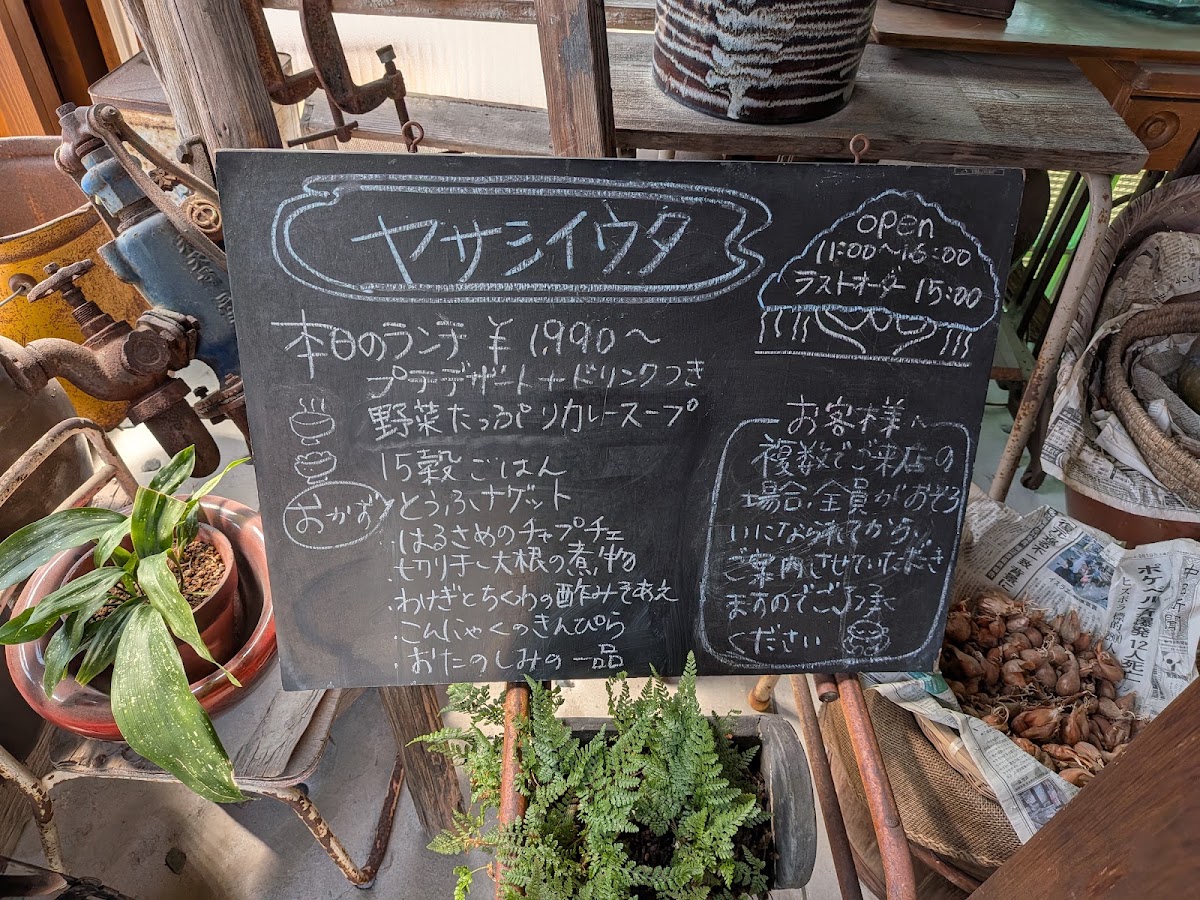 ヤサシイウタ
open
11:00〜16:00
ラストオーダー 15:00
本日のランチ ¥1,990〜
プチデザート+ドリンクつき
野菜たっぷりカレースープ
15穀ごはん
おかず
・とうふナゲット
・はるさめのチャプチェ
・切り干し大根の煮物
・わけぎとちくわの酢みそあえ
・こんにゃくのきんぴら
・おたのしみの一品
お客様へ
複数でご来店の
場合、全員がおそろ
いになられてから、
ご案内させていただき
ますのでご了承
ください